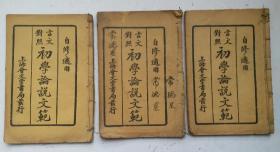 自修適用
言文
對照
初學論說文範
上海會文堂書局發行
自修適用
言文
對照
初學論說文範
上海會文堂書局發行
自修適用
言文
對照
初學論說文範
上海會文堂書局發行